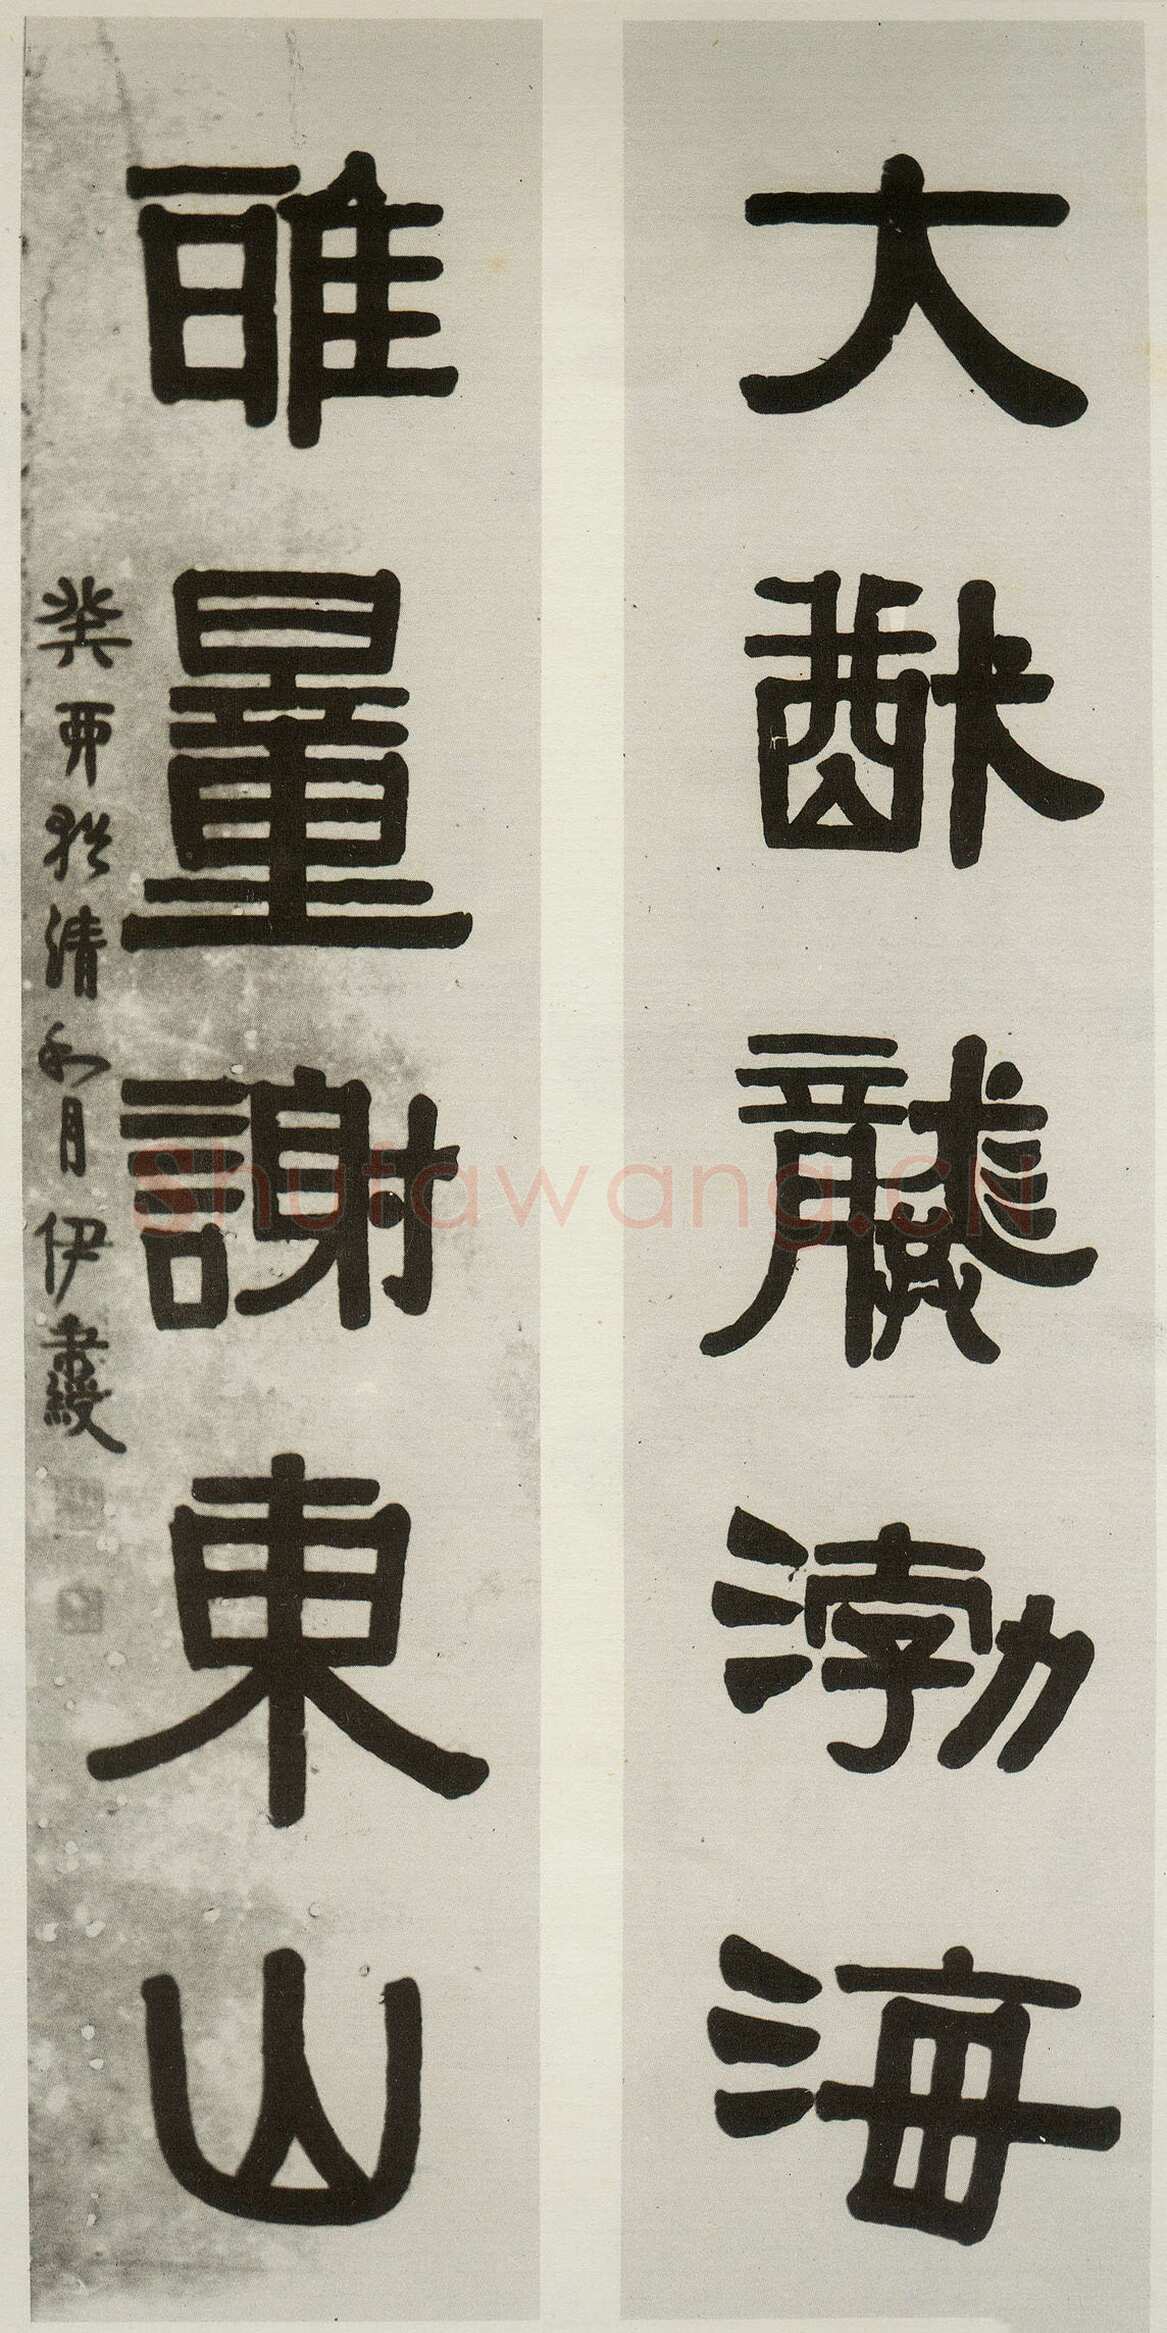 大猷龔渤海
雅量謝東山
癸酉清和月伊秉綬
shufawang.CN